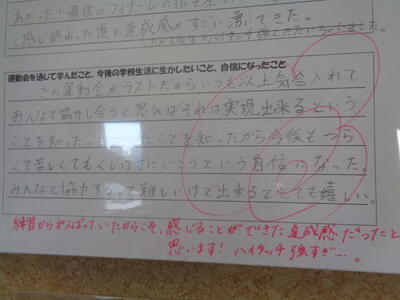 あがった!!最後のフィナーレ
と感じ終わった頃に達成感がすごい湧いてきた。
運動会を通じて学んだこと、今後の学校生活に生かしたいこと、自信になったこと
この運動会がラストだからいつも以上気合入れて
みんなで協力し合うと思えばそれは実現出来るという
ことを知った。 ことを知ったから今後もつら
くて苦しくてもくじけずにいこうという自信になった。
みんなと協力するって難しいけど出来るととても嬉しい。
練習からがんばっていたからこそ、感じることができた達成感だったと
思います! ハイタッチ強すぎ…。